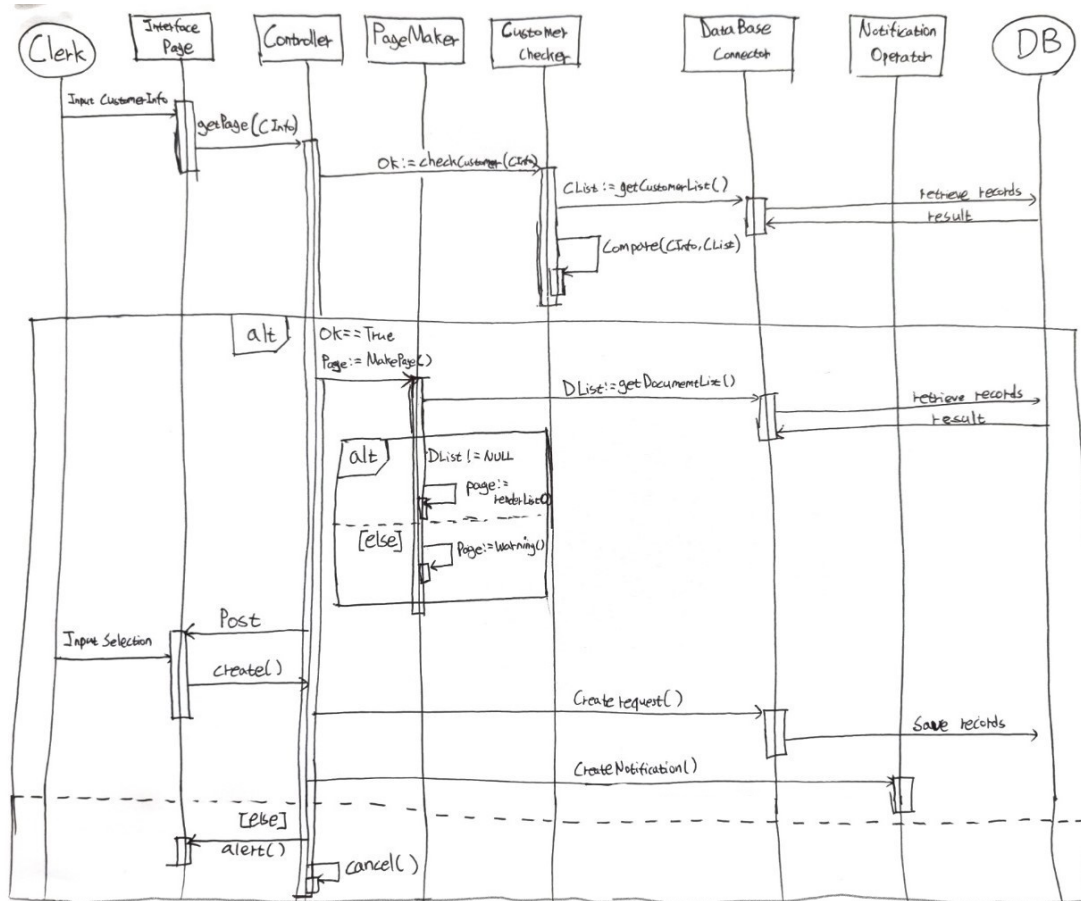 Clerk
Interface
Page
Controller
PageMaker
Customer
Checker
DataBase
Connector
Notification
Operator
DB
Input CustomerInfo
getPage(CInfo)
Ok:=checkCustomer(CInfo)
CList:=getCustomerList()
retrieve records
result
Compare(CInfo,CList)
alt
Ok==True
Page:=MakePage()
DList:=getDocumentList()
retrieve records
result
alt
DList!=NULL
page:=
renderList()
[else]
Page:=Warning()
Post
Input Selection
create()
Create request()
Save records
CreateNotification()
[else]
alert()
cancel()